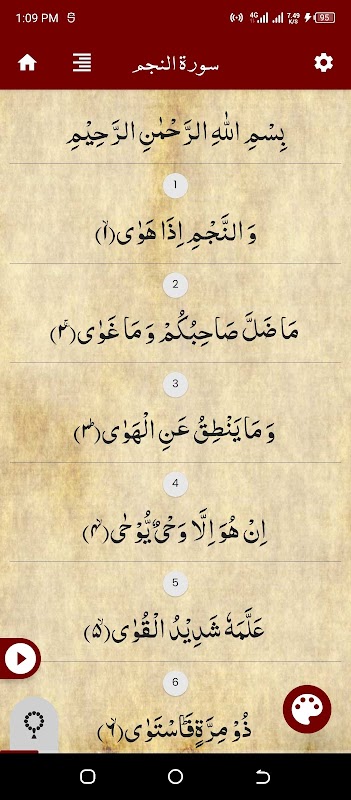 1:09 PM
4G 7.49 K/S 95
سورة النجم
بِسْمِ اللّٰهِ الرَّحْمٰنِ الرَّحِیْمِ
1
وَ النَّجْمِ اِذَا هَوٰىۙ(۱)
2
مَا ضَلَّ صَاحِبُكُمْ وَ مَا غَوٰىۚ(۲)
3
وَ مَا یَنْطِقُ عَنِ الْهَوٰىؕ(۳)
4
اِنْ هُوَ اِلَّا وَحْیٌ یُّوْحٰىۙ(۴)
5
عَلَّمَهٗ شَدِیْدُ الْقُوٰىۙ(۵)
6
ذُوْ مِرَّةٍؕ فَاسْتَوٰىۙ(۶)